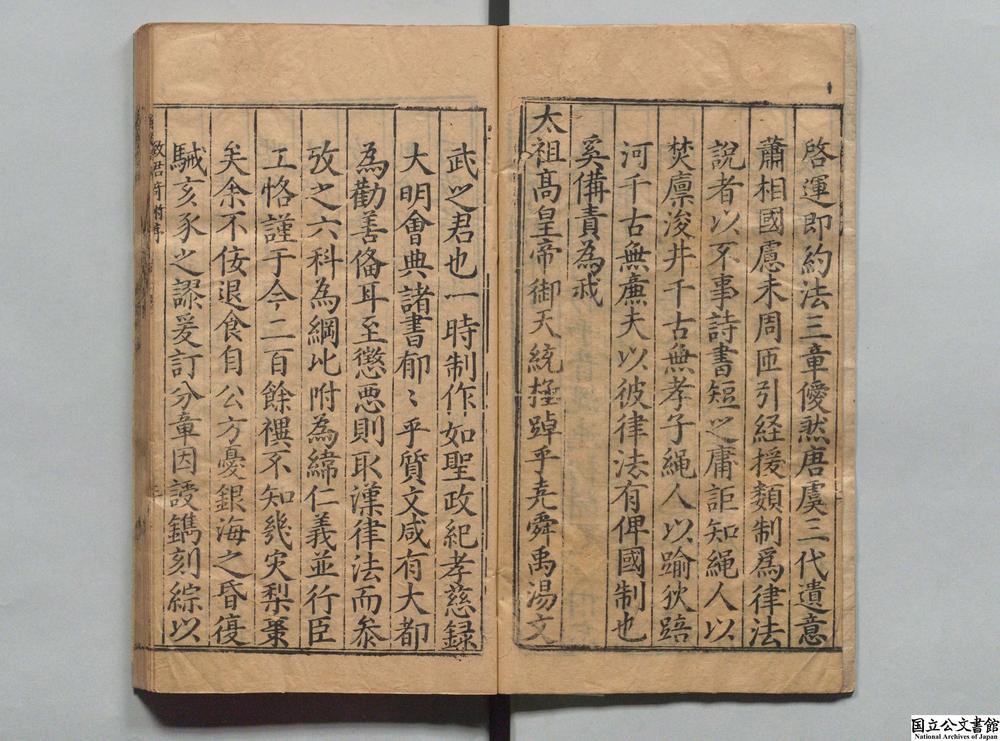 啓運即約法三章僾然唐虞三代遺意
蕭相國慮未周匝引経援𩔖制爲律法
說者以不事詩書短之庸詎知繩人以
焚廪浚井千古無孝子繩人以踰狄踣
河千古無亷夫以彼律法有俾國制也
奚俻責為戒
太祖髙皇帝御天統極踔乎尭舜禹湯文
武之君也一時制作如聖政紀孝慈録
大明會典諸書郁〻乎質文咸有大都
為勸善俻耳至懲悪則取漢律法而叅
攷之六科為綱比附為緯仁義並行臣
工恪謹于今二百餘禩不知㡬灾梨棗
矣余不佞退食自公方憂銀海之昏復
駴亥豕之謬爰訂分章因䛠鐫刻綜以
国立公文書館
National Archives of Japan